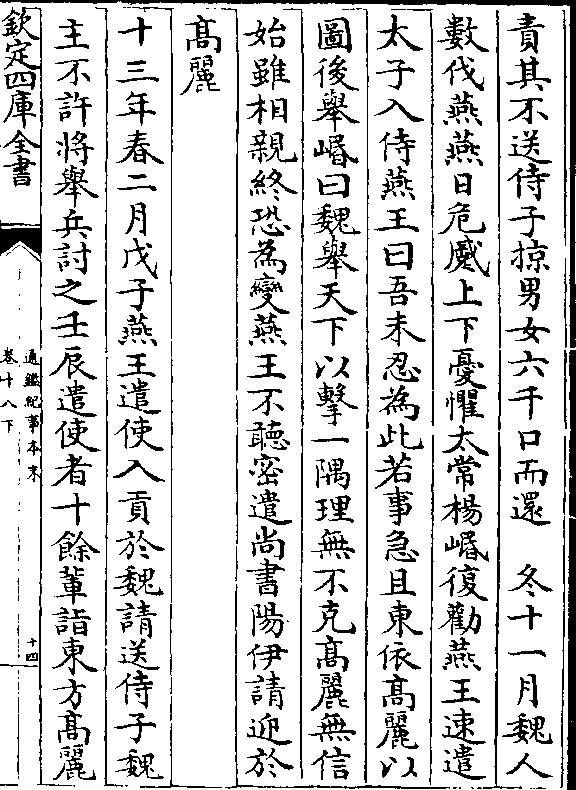 責其不送侍子掠男女六千口而還　冬十一月魏人
數伐燕燕日危蹙上下憂懼太常楊㟭復勸燕王速遣
太子入侍燕王曰吾未忍為此若事急且東依髙麗以
圖後舉㟭曰魏舉天下以擊一隅理無不克髙麗無信
始雖相親終恐為變燕王不聽密遣尚書陽伊請迎於
髙麗
十三年春二月戊子燕王遣使入貢於魏請送侍子魏
主不許將舉兵討之壬辰遣使者十餘輩詣東方髙麗
欽定四庫全書
通鑑紀事本末
卷十八下
十四